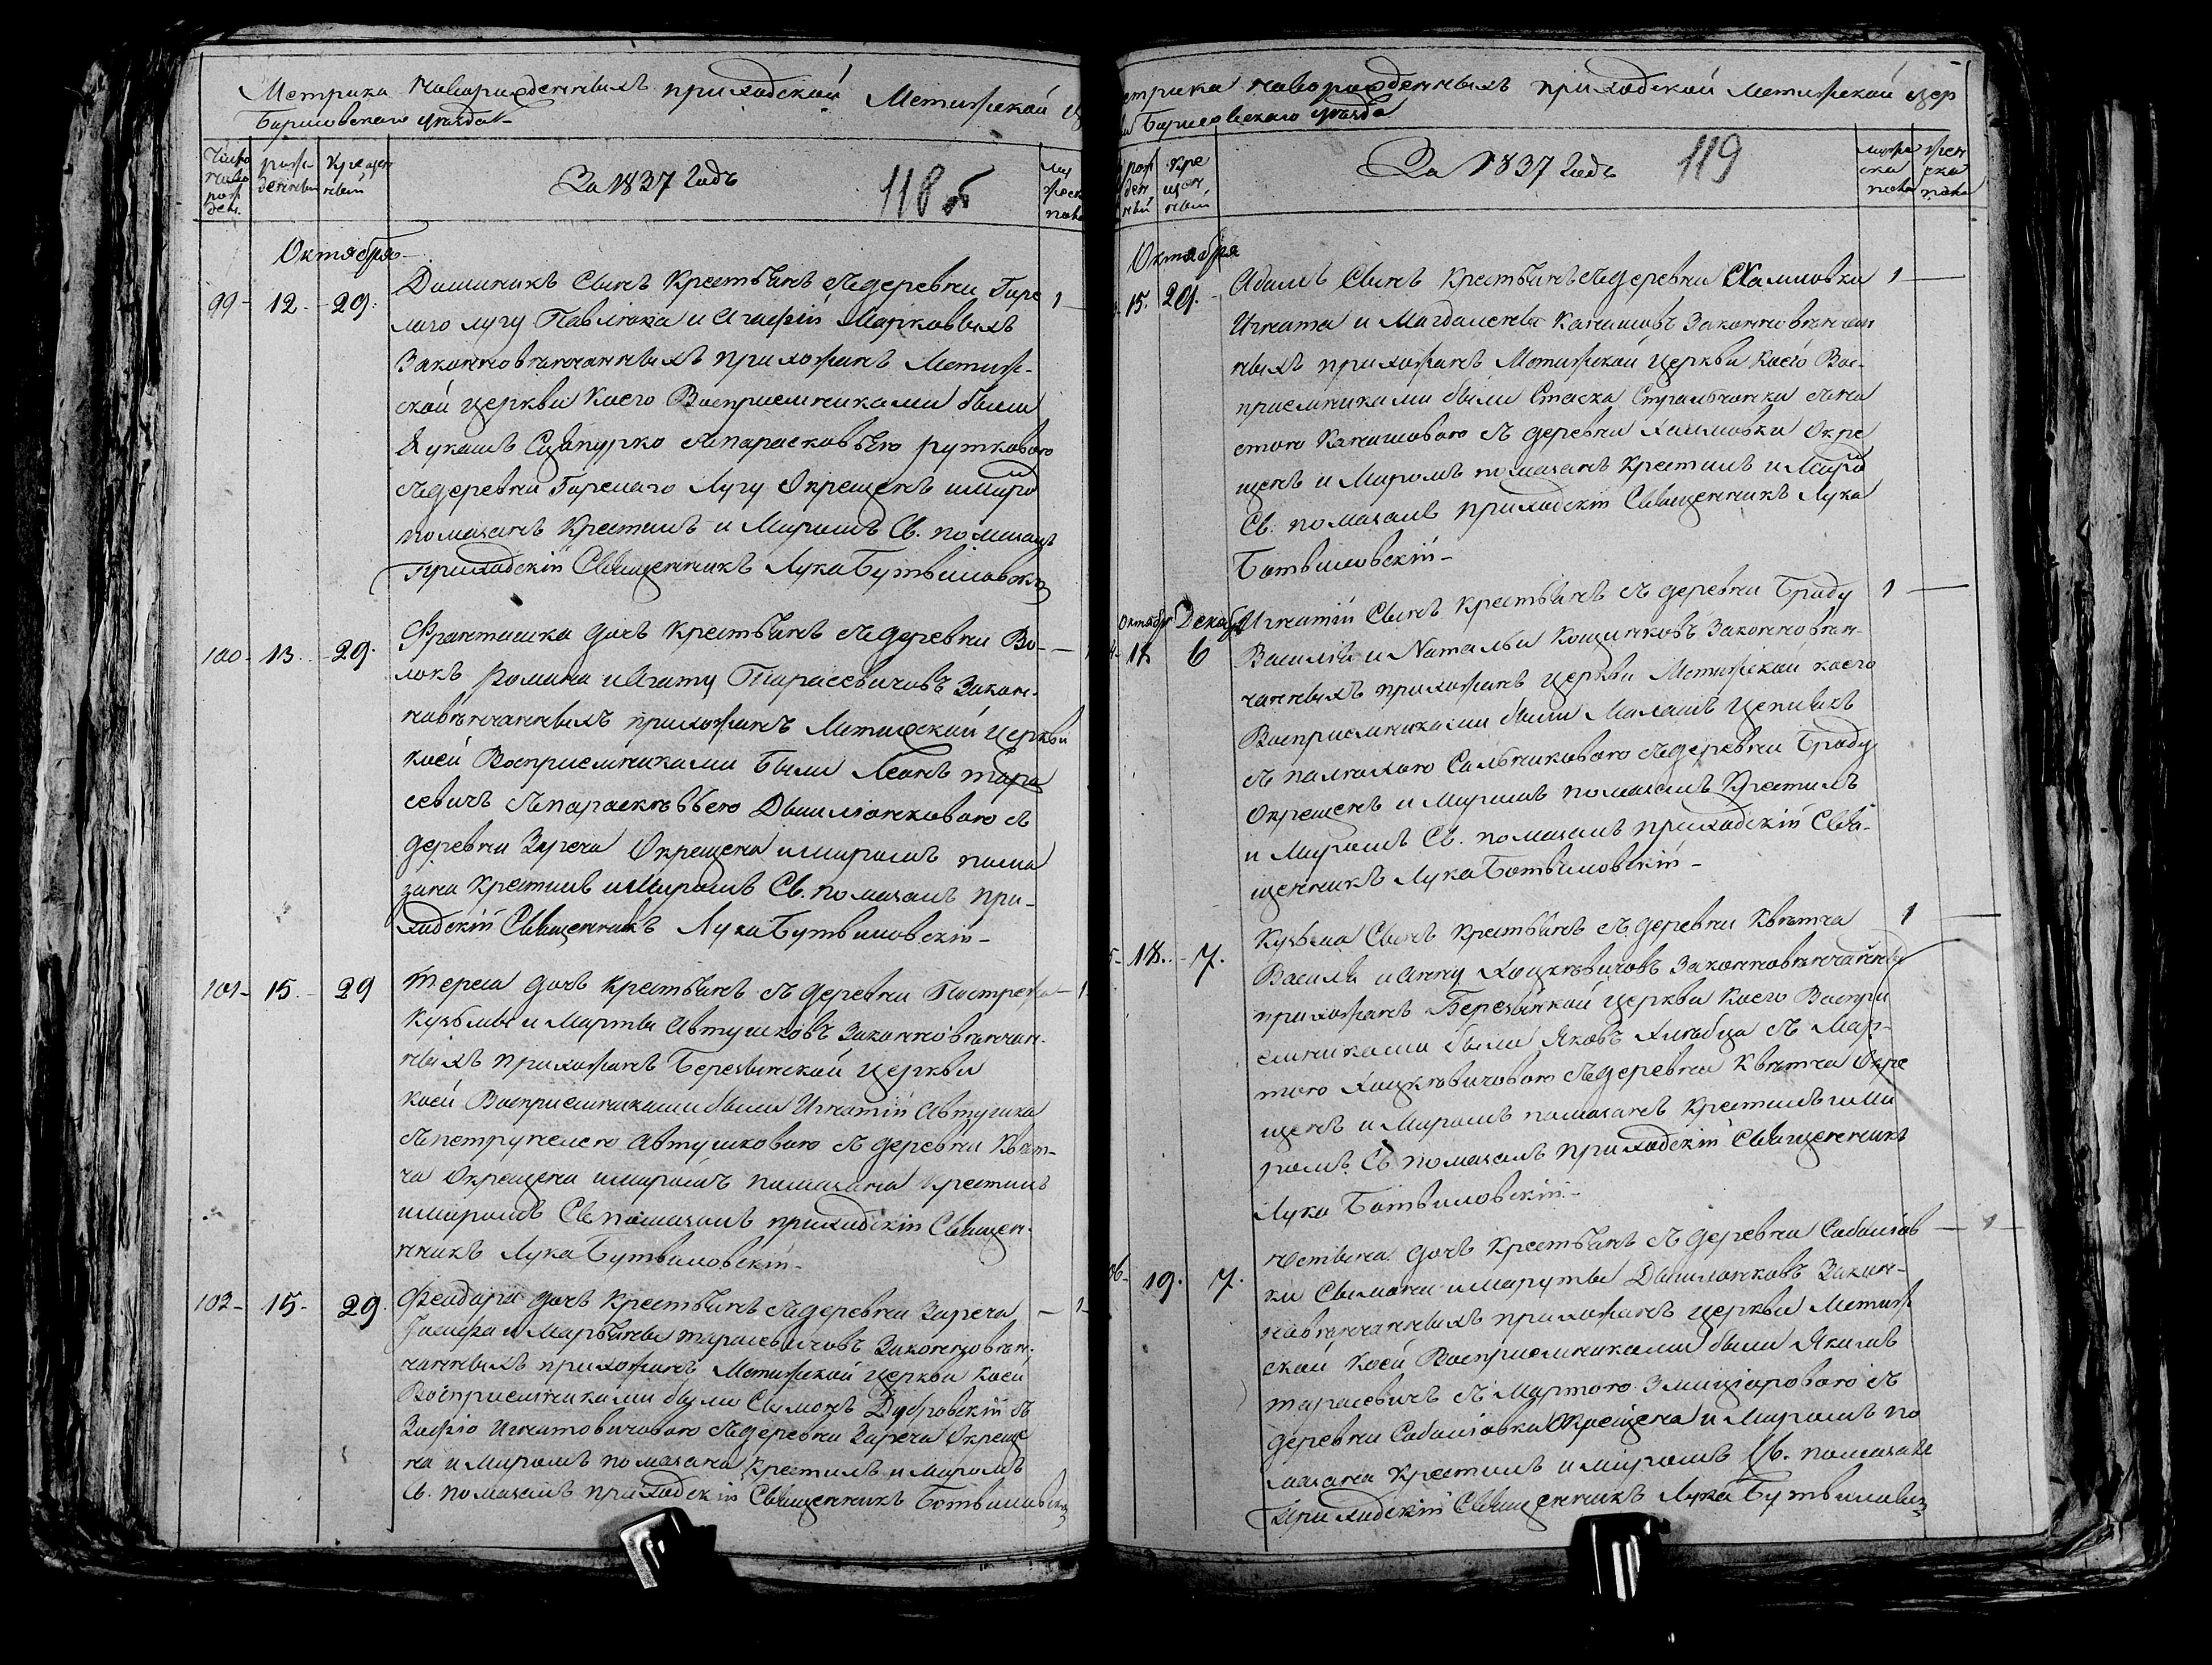 Метрика Новорожденныхъ приходской Метижской
Борисовскаго уѣзда
Число ново рожден.
рожденныи
Крещенныи
За 1837 Годъ
118 б
Октября
99 - 12 - 29.
Доминикъ Сынъ Крестьянъ Здеревни Горе 1
лаго лугу Павлюка и Агафіи Марковыхъ
Законновѣнчанныхъ прихожанъ Метиж-
ской церкви Коего Восприемниками были
Лукашъ Спарасковьею рутковою
Здеревни Горелаго Лугу Окрещенъ имиро
помазанъ Крестилъ и Миромъ Св. помазалъ
Приходскій Священникъ Лука Бутвиловскій
100 - 13 - 29.
Франтишка дочь Крестьянъ Здеревни Во-
локъ Романа иАгаты Тарасевичовъ Закон-
новѣнчанныхъ прихожанъ Метижской Церкви
коей Восприемниками Были Леонъ тара
севичъ Спараскевьею Даниленковою З
деревни Зареча Окрещена имиромъ пома
зана Крестилъ иМиромъ Св. помазалъ при-
ходскій Священникъ Лука Бутвиловскій -
101 - 15 - 29
Тереса дочь Крестьянъ З деревни Пострежа
Кузьмы и Марты Автушковъ Законновѣнчан-
ныхъ прихожанъ Березинской церкви
коей Восприемниками были Игнатій Автушка
Спетрунелею Автушковою З деревни Квѣт-
ча Окрещена имиромъ помазана Крестилъ
имиромъ Св помазалъ приходскій Священ-
никъ Лука Бутвиловскій -
102 - 15 - 29.
Феодора дочь Крестьянъ Здеревни Зареча - 1
Іосифа и Марьяны тарасевичовъ Законновѣн-
чанныхъ прихожанъ Метижской церкви коей
Восприемниками были Сымонъ Дубровскій З
Зофіею Игнатовичовою Здеревни Зареча Окреще
на и Миромъ помазана Крестилъ и Миромъ
Св. помазалъ приходскій Священникъ Ботвиловскій
Метрика новорожденныхъ приходской Метижской цер
Борисовскаго уѣзда
рож ден ныи
Кре щен ныи
За 1837 Годъ
119
мужеска пола
женска пола
Октября
15. 29.
Адамъ Сынъ Крестьянъ Здеревни Халимовки 1
Игната и Магдалены Канашовъ Законновѣнчан
ныхъ прихожанъ Метижской церкви Коего Вос-
приемниками были Стаска
Канашовою З деревни Халимовки Окре
щенъ и Миромъ помазанъ Крестилъ и Миро
Св. помазалъ приходскій Священникъ Лука
Ботвиловскій -
Октябр Декаб
6
Игнатій Сынъ Крестьянъ З деревни Броду 1
Василія и Натальи Кощинковъ Законновѣн-
чанныхъ прихожанъ церкви Метижской коего
Восприемниками были
Сальниковою Здеревни Броду
Окрещенъ и Миромъ помазанъ Крестилъ
и Миромъ Св. помазалъ приходскій Свя-
щенникъ Лука Ботвиловскій -
18. - 7.
Кузьма Сынъ Крестьянъ З деревни Квѣтча 1
Василя иАнны Хоцкевичовъ Законновѣнчанны
прихожанъ Березинской Церкви Коего Воспри
емниками были Яковъ З Мар-
тою Хоцкевичовою Здеревни Квѣтча Окре
щенъ и Миромъ помазанъ Крестилъ ими
ромъ Св помазалъ приходскій Священникъ
Лука Ботвиловскій -
19. 7.
Юстына дочь Крестьянъ З деревни - 1
ки Сымона имаруты Даниленковъ Закон-
новѣнчанныхъ прихожанъ церкви Метиж
ской коей Восприемниками были Якимъ
тарасевичъ З Мартою З
деревни Окрещена и Миромъ по
мазана Крестилъ имиромъ Св. помазалъ
Приходскій Священникъ Лука Бутвиловск